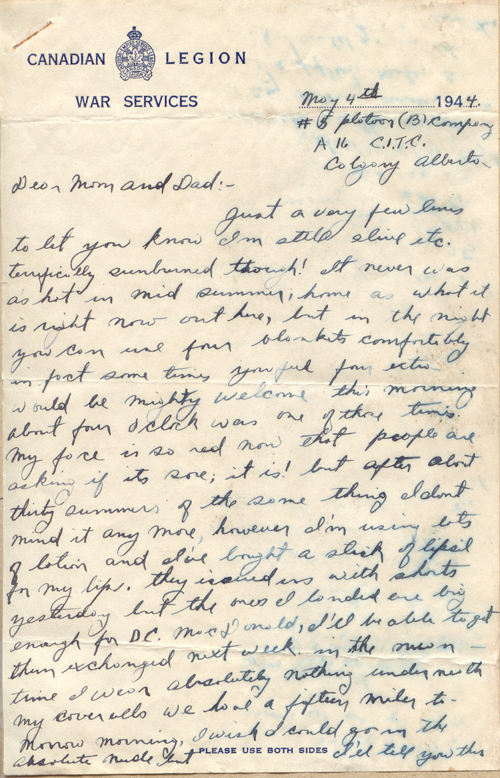 CANADIAN LEGION
WAR SERVICES
May 4th 1944.
#5 platoon (B) Company
A 16 C.I.T.C.
Calgary Alberta
Dear Mom and Dad:-
Just a very few lines
to let you know I'm still alive etc.
terrifically sunburned though! It never was
as hot in mid summer, home as what it
is right now out here, but in the night
you can use four blankets comfortably
in fact some times you feel four extra
would be mighty welcome this morning
about four o'clock was one of those times
My face is so red now that people are
asking if its sore; it is! but after about
thirty summers of the same thing I dont
mind it any more, however I'm using lots
of lotion and I've bought a stick of lipsil
for my lips. they issued us with shorts
yesterday but the ones I landed are big
enough for D.C. MacDonald, I'll be able to get
them exchanged next week. in the mean-
time I wear absolutely nothing underneath
my coveralls we have a fifteen miler to-
morrow morning, I wish I could go in the
absolute nude but I'll tell you this
PLEASE USE BOTH SIDES